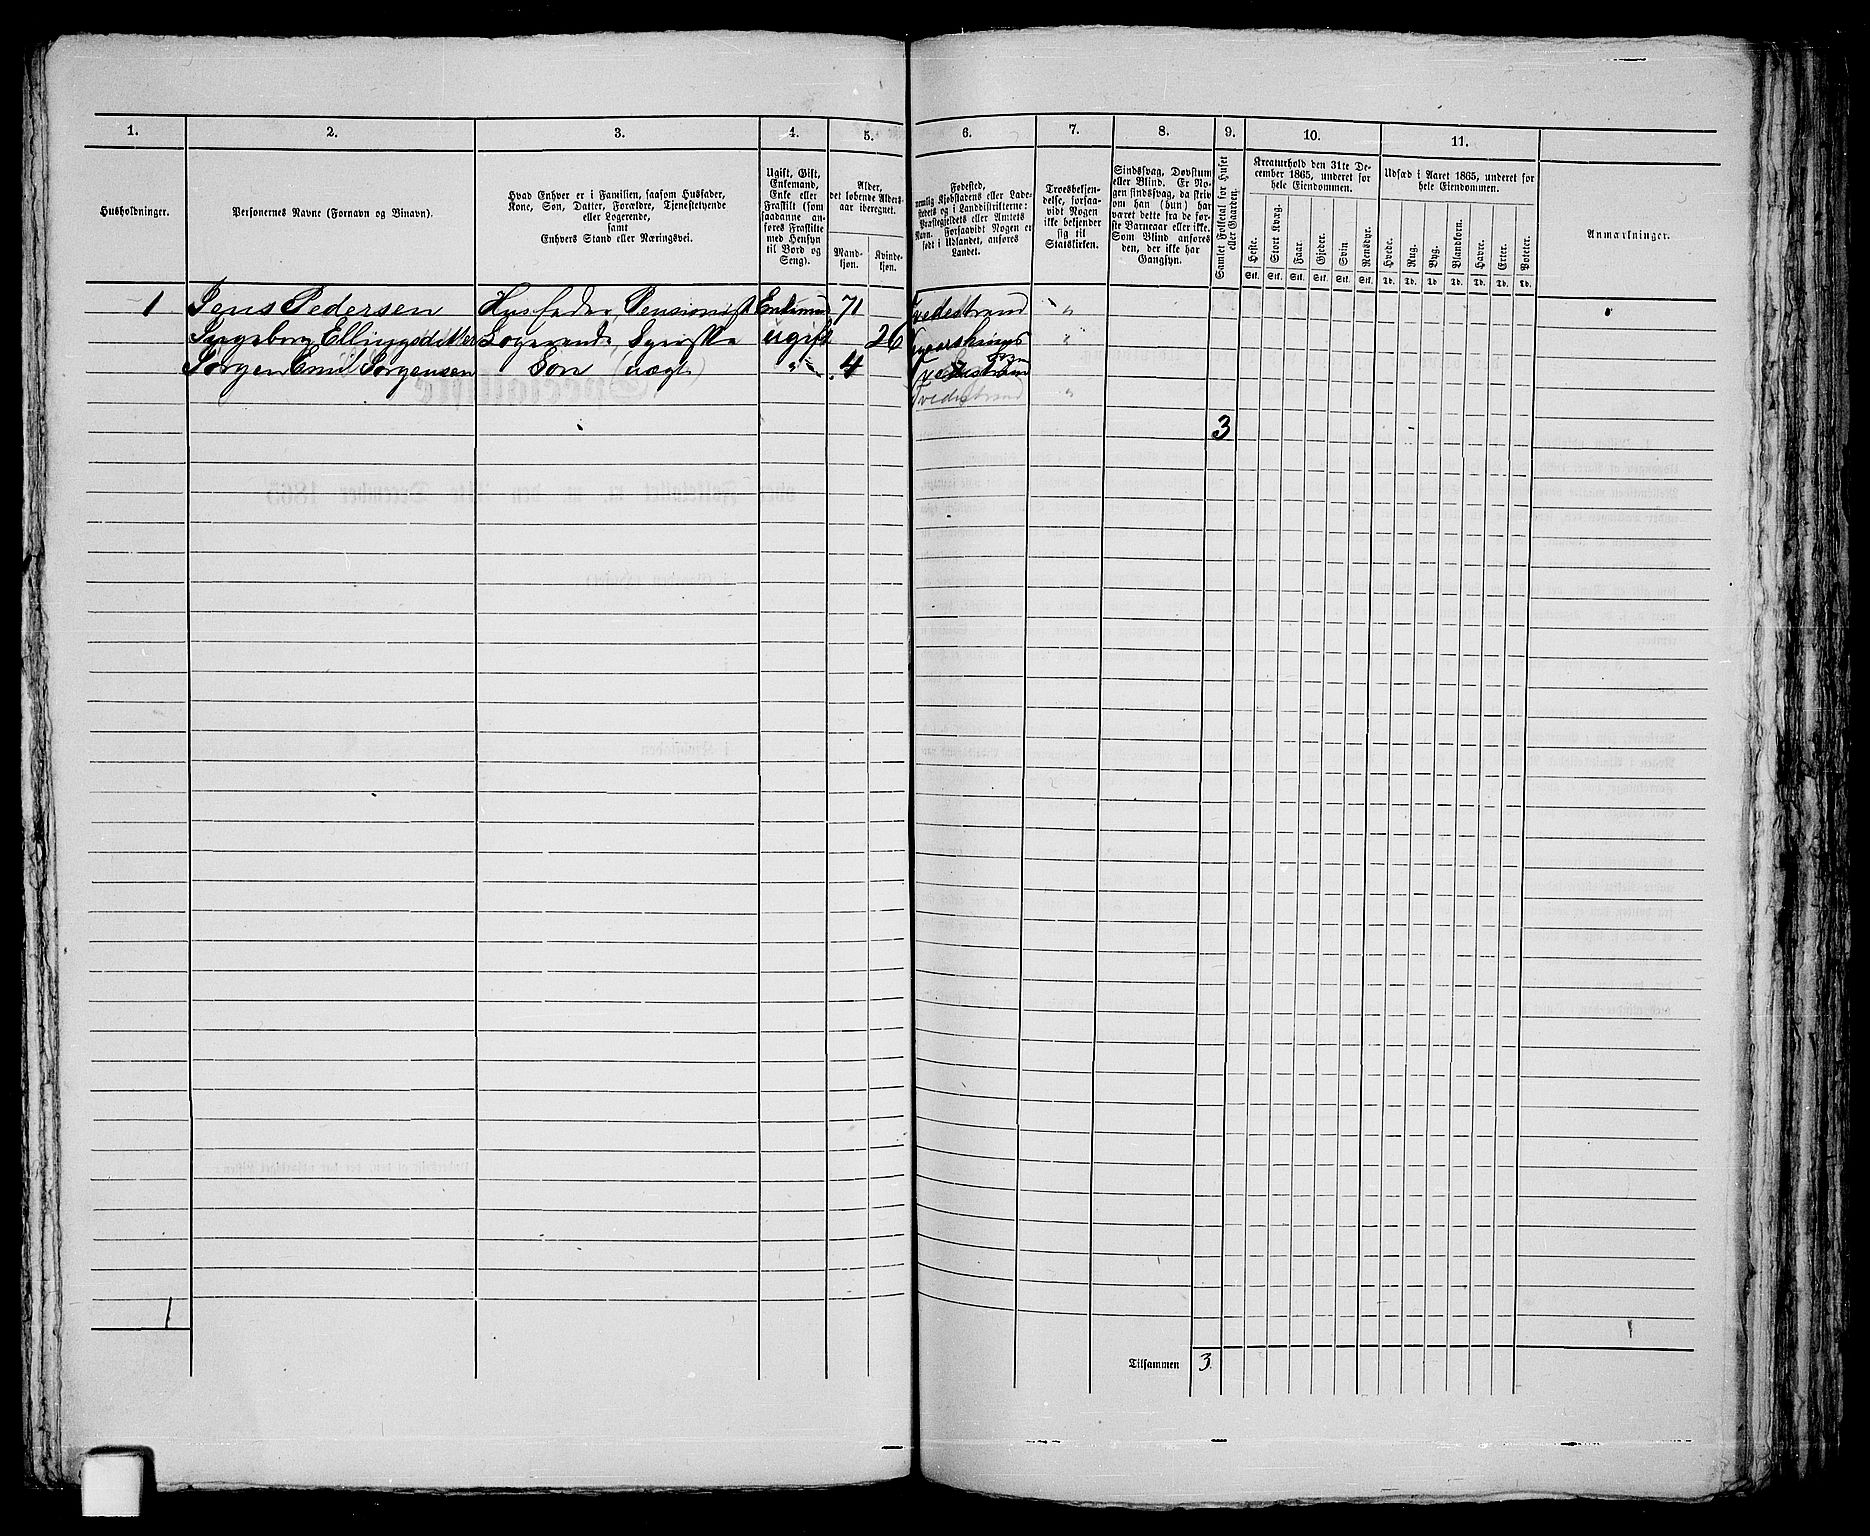 1. 2. 3. 4. 5. 6. 7. 8. 9. 10. 11.
Husholdninger.
Personernes Navne (Fornavn og Binavn).
Hvad Enhver er i Familien, saasom Husfader,
Kone, Søn, Datter, Forældre, Tjenestetyende
eller Logerende,
samt
Enhvers Stand eller Næringsvei.
Ugift, Gift,
Enkemand,
Enke eller
Fraskilt (som
saadanne an-
føres Fraskilte
med Hensyn
til Bord og
Seng).
Alder,
det løbende Alders-
aar iberegnet.
Mand-
kjøn.
Kvinde-
kjøn.
Fødested,
nemlig Kjøbstadens eller Lade-
stedets og i Landdistrikterne:
Præstegjeldets eller Amtets
Navn. Forsaavidt Nogen er
født i Udlandet, anføres
Landet.
Troesbekjen-
delse, forsaa-
vidt Nogen
ikke bekjender
sig til
Statskirken.
Sindssvag, Døvstum
eller Blind. Er No-
gen sindssvag, da skriv
om han (hun) har
været dette fra de før-
ste Barneaar eller ikke.
Som Blind anføres
den, der ikke har
Gangsyn.
Samlet Folketal for Huset
eller Gaarden.
Kreaturhold den 31te De-
cember 1865, underet for
hele Eiendommen.
Heste. Stort Kvæg. Faar. Gjeder. Svin Rensdyr.
Stk. Stk. Stk. Stk. Stk. Stk.
Udsæd i Aaret 1865, underet for
hele Eiendommen.
Hvede. Rug. Byg. Blandkorn. Havre. Erter. Poteter.
Td. Td. Td Td. Td. Td. Td.
Anmærkninger.
1 Jens Pedersen Husfader, Pensionist Enkemand 71 Tvedestrand "
Ingeborg Ellingsdatter Logerende, Syerske ugift 26 "
Jørgen Emil Jørgensen Søn (uægt) " 4
Tvedestrand "
3
1
Tilsammen 3